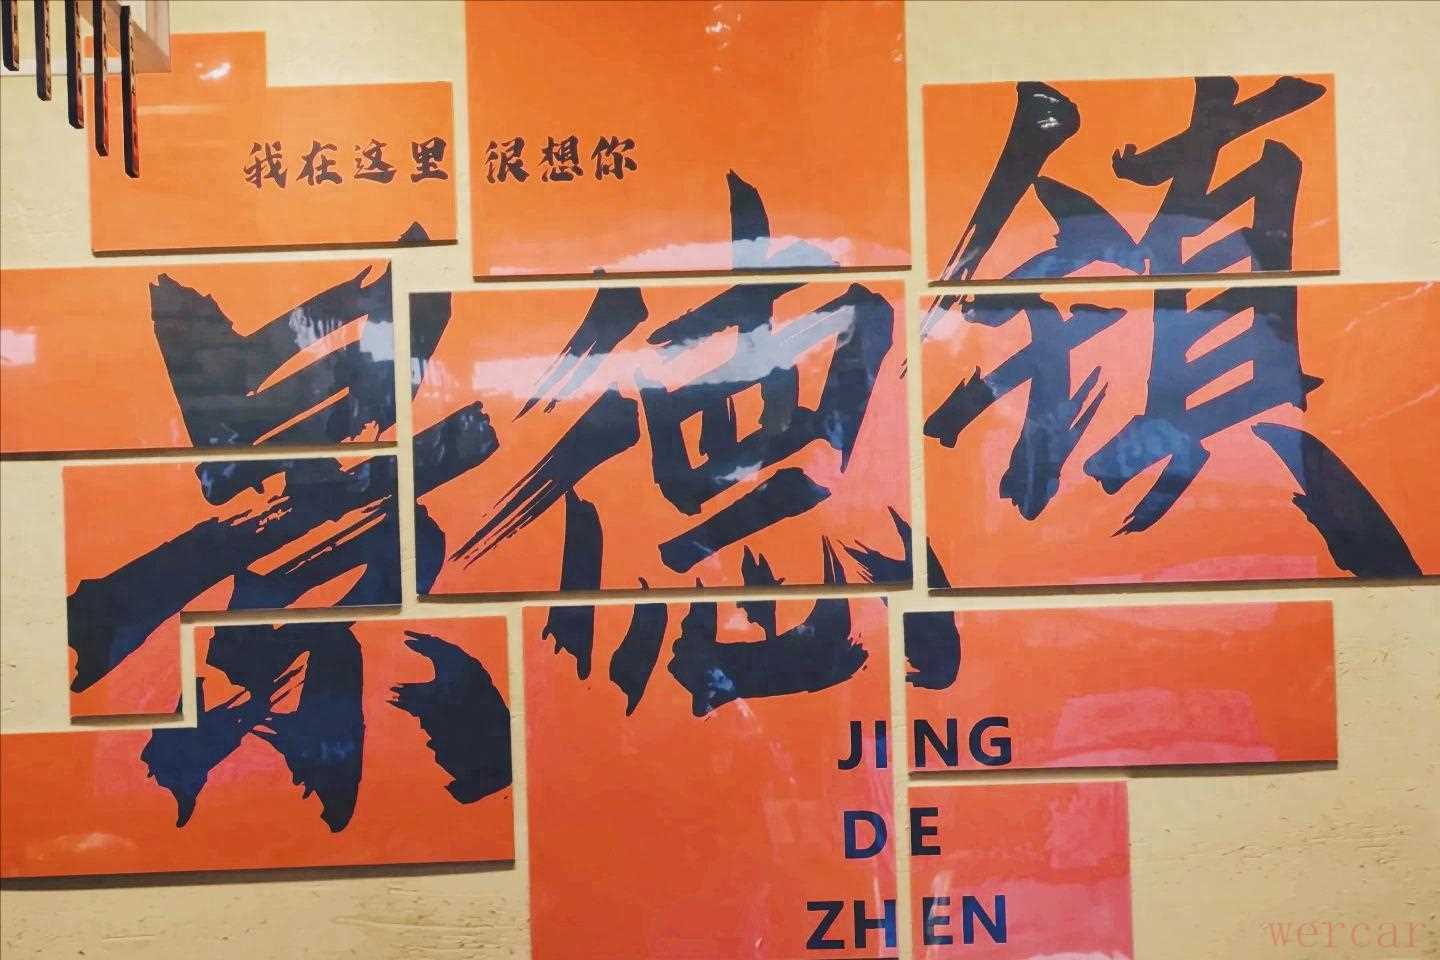 我在这里很想你
景德镇
JING
DE
ZHEN
wercar